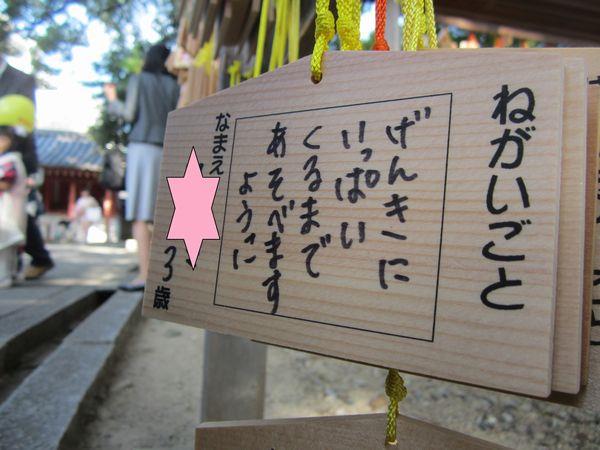 ねがいごと
げんきに
いっぱい
くるまで
あそべます
ように
なまえ
3歳